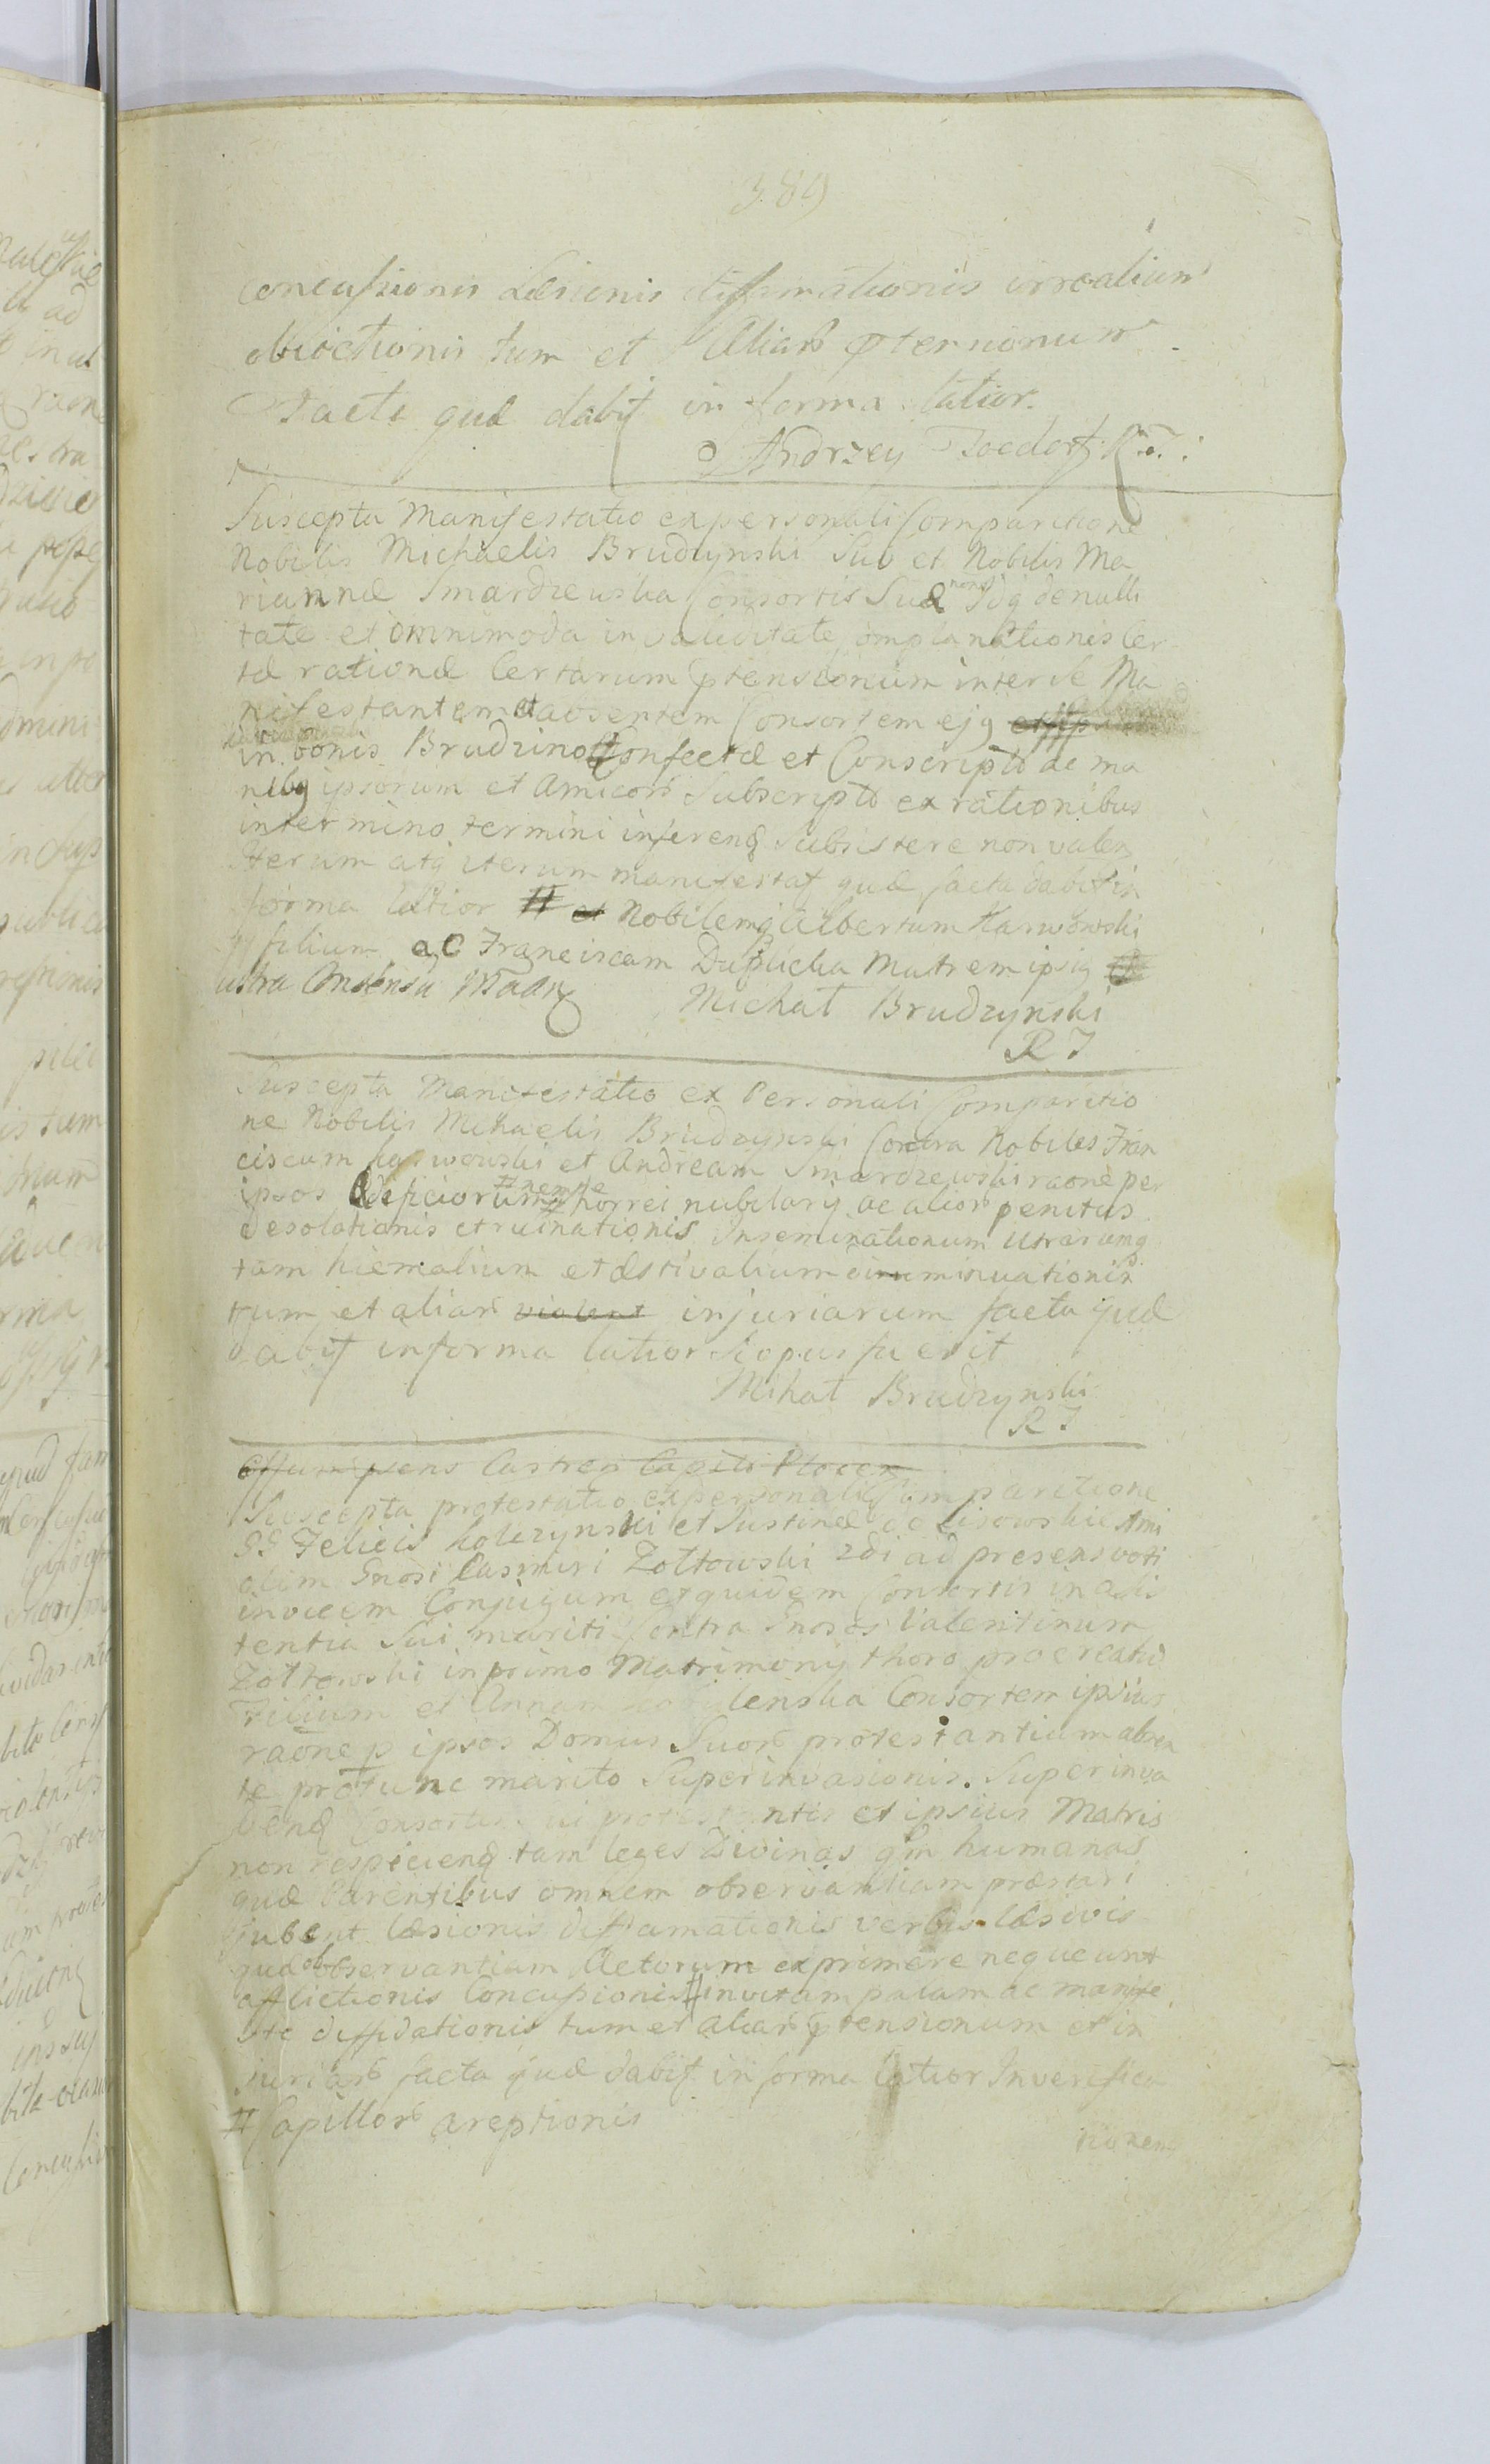 389
concussionis Læsionis diffamationis irrealium
obiectionis tum et Aliarũ ptensionum
Facta quæ dabit in forma latior.
Andrzey R. J:
Suscepta Manifestatio ex personali Comparitione
Nobilis Michaelis Brudzynski Suo et Nobilis Ma
riannæ Smardzewska Consortis Suæ noĩe Idq de nulli
tate et omnimoda invaliditate complanationis Cer
tæ rationæ Certarum ptensionum inter se Ma
nifestantem et absentem Consortem ejq
in bonis Brudzino # Confectæ et Conscriptæ ac ma
nibq ipsorum et Amicorũ Subscriptæ ex rationibus
in termino termini inferend Subsistere non valen
Iterum atq iterum manifestat quæ facta dabit in
forma latior # et Nobilemq Albertum Karwowski
filium ac Franciscam Duplicka Matrem ipsiq
Michał Brudzynski
R J
Suscepta Manifestatio ex Personali Comparitio
ne Nobilis Mihaelis Brudzynski Contra Nobiles Fran
ciscum Karwowski et Andream Smardzewski raone per
ipsos Ædificiorum # nempe horrei nubilarij ac aliorũ penitus
desolationis et ruinationis Inseminationum utrarumq
tam hiemalium et æstivalium diminuationis
tum et aliarũ violent injuriarum facta quæ
dabit in forma latior Si opus fuerit
Mihał Brudzynski
R J
Offum psens Castren Capitl Plocen
Suscepta protestatio ex personali Comparitione
GG Felicis Kolczynski et Justinæ de Lisowskie Ami
olim Gnosi Casimiri Zołtowski 2di ad presens voti
invicem Conjugum et quidem Consortis in assis
tentia Sui mariti Contra Gnosos Valentinum
Zołtowski in primo Matrimonij thoro procreatũ
Filium et Annam Consortem ipsius
raone p ipsos Domus Suorũ protestantium absen
te pro tunc marito Superinvasionis. Superinva
dend Consortis ui protestantis et ipsius Matris
non respiciend tam leges Divinas qm humanas
quæ Parentibus omnem observantiam præstari
jubent læsionis diffamationis verbis læsivis
quæ ob observantiam Actorum exprimere nequeunt
afflictionis Concussionis # in vitam palam ac manife
ste diffidationis tum et aliarũ ptensionum et in
juriarũ facta quæ dabit in forma latior In verifica
# Capillorũ areptionis
tionem